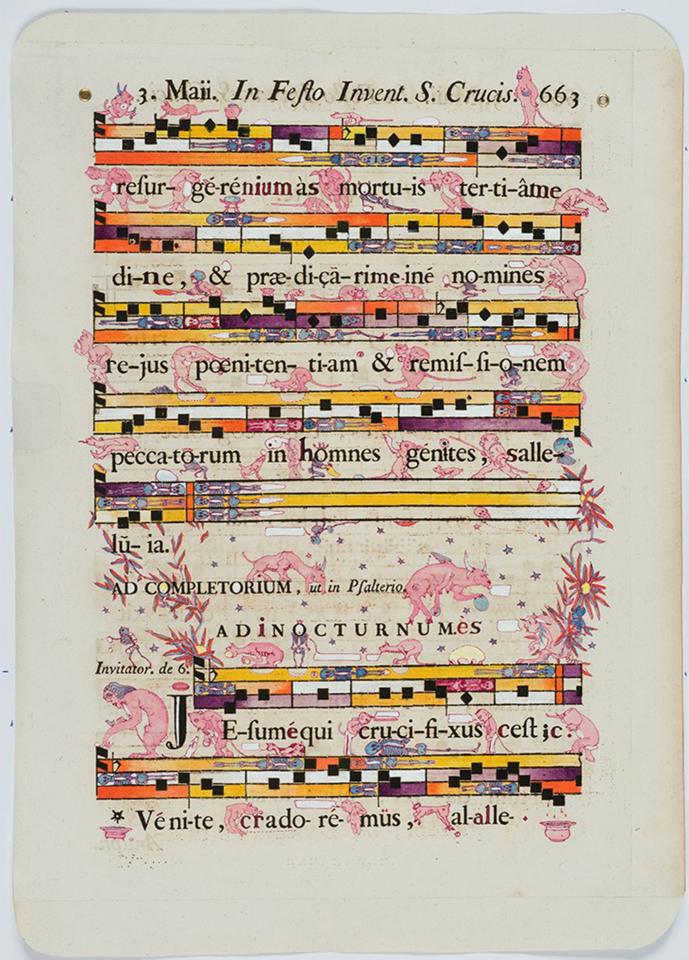 3. Maii. In Festo Invent. S. Crucis. 663
resur- gérénium às mortu-is ter-ti-âme
di-ne, & præ-di-çā-rime-iné no-mines
re-jus pœni-ten- ti-am & remis-si-o-nem
pecca-to-rum in homnes génites, salle-
lū- ia.
AD COMPLETORIUM, ut in Psalterio.
ADINOCTURNUMès
Invitator. de 6.
JE-suméqui cru-ci-fi-xus cest jc.
* Véni-te, crado- re- müs, al-alle-